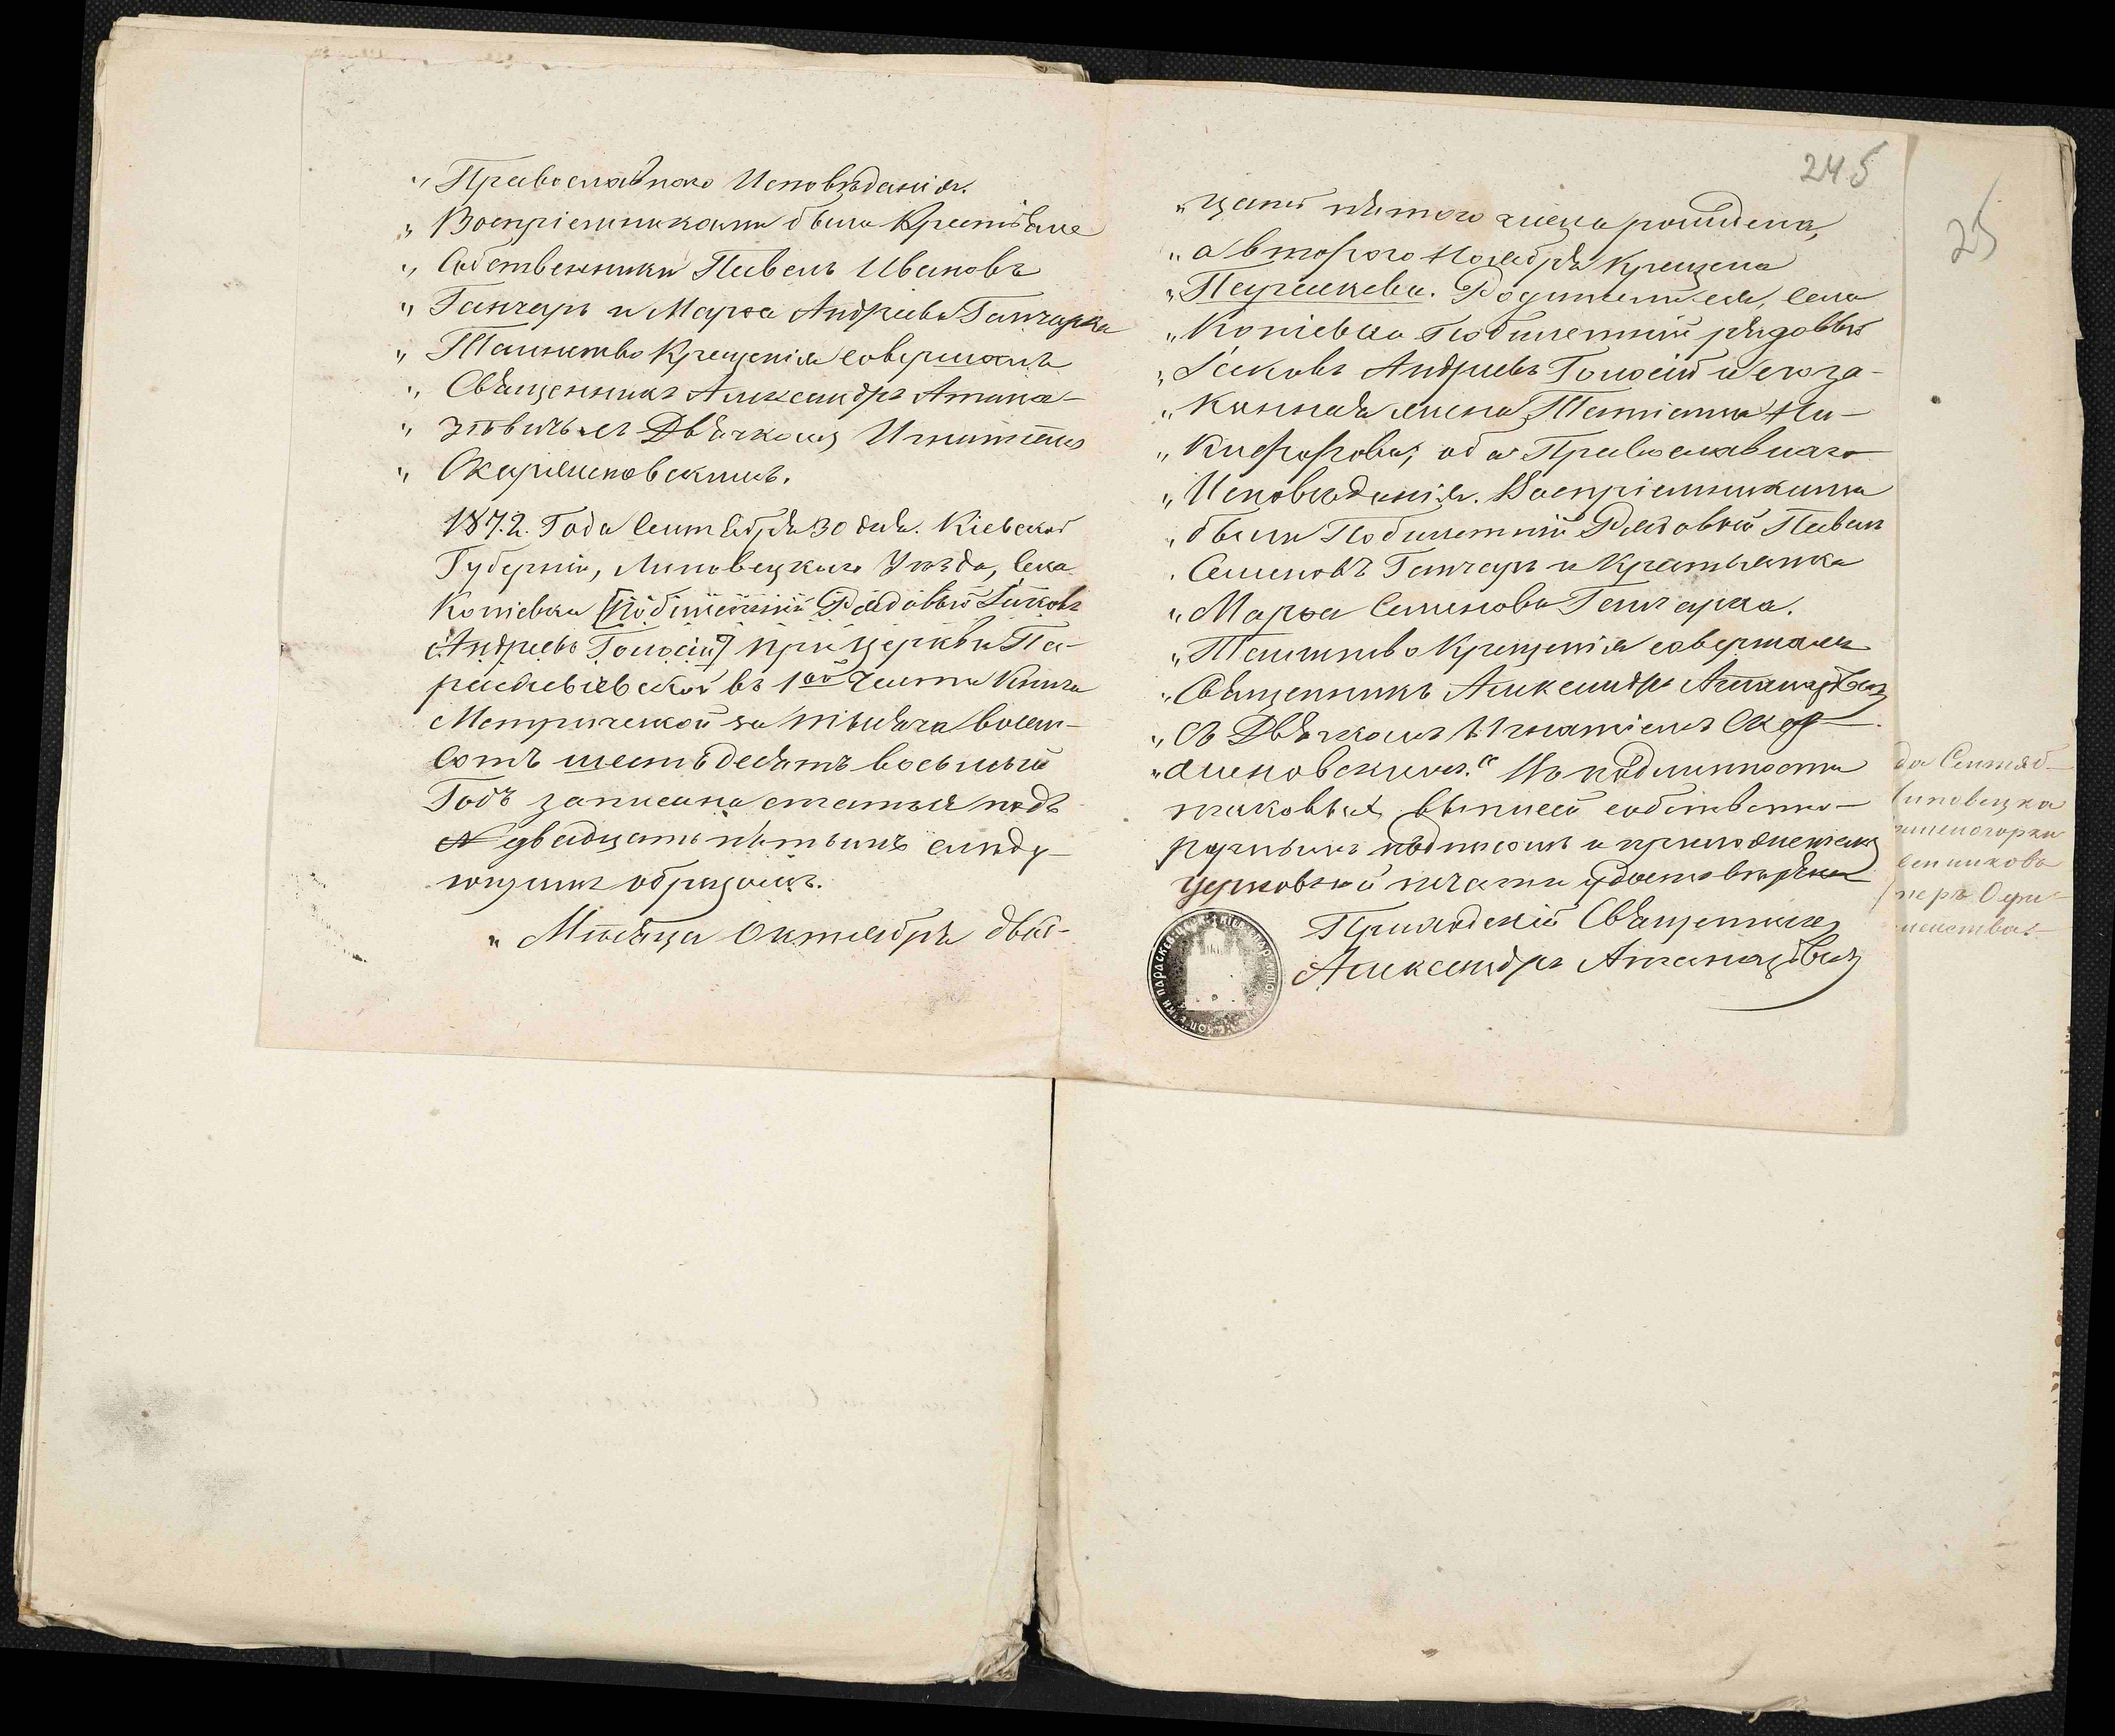 „ Православнаго Исповѣданія.
„ Воспріемниками были Крестьяне
„ Собственники Павелъ Ивановъ
„ Ганчаръ и Марѳа Андреева Ганчарка
„ Таинство Крещенія совершалъ
„ Священникъ Александръ Атана-
„ зѣвичъ съ Дьячкомъ Игнатіемъ
„ Скарженовскимъ.
1872. Года Сентября 30 дня. Кіевской
Губерніи, Липовецкаго Уѣзда, Села
Копіевки [Подилетній Рядовый Іаковъ
Андреевъ Голосій] при церкви Па-
раскевіевской въ 1ой Части Книги
Метрической за тысяча восем-
сотъ шестьдесятъ восьмый
Годъ записана статья подъ
№ двадцать пятымъ слѣду-
ющимъ образомъ.
„ Мѣсяца Октября двад-
245
„ цать пятого числа рождена,
„ а втораго Ноября крещена
„ Параскева. Родители ея, села
„ Копіевки Подилетній рядовый
„ Іаковъ Андреевъ Голосій и его за-
„ конная жена Татіанна Ни-
„ кифорова, оба Православнаго
„ Исповѣданія. Воспріемниками
„ были Подилетній Рядовый Павелъ
„ Семеновъ Ганчаръ и Крестьянка
„ Марѳа Семенова Ганчарка.
„ Таинство Крещенія совершалъ
„ Священникъ Александръ Атаназѣвичъ
„ съ Дьячкомъ Игнатіемъ Скар-
„ женовскимъ.“ Въ подлинности
таковыхъ выписей собственно-
ручнымъ подписомъ и приложеніемъ
Церковной печати удостовѣряю
Приходскій Священникъ
Александръ Атаназѣвичъ
25
да Сентяб-
Липовецка